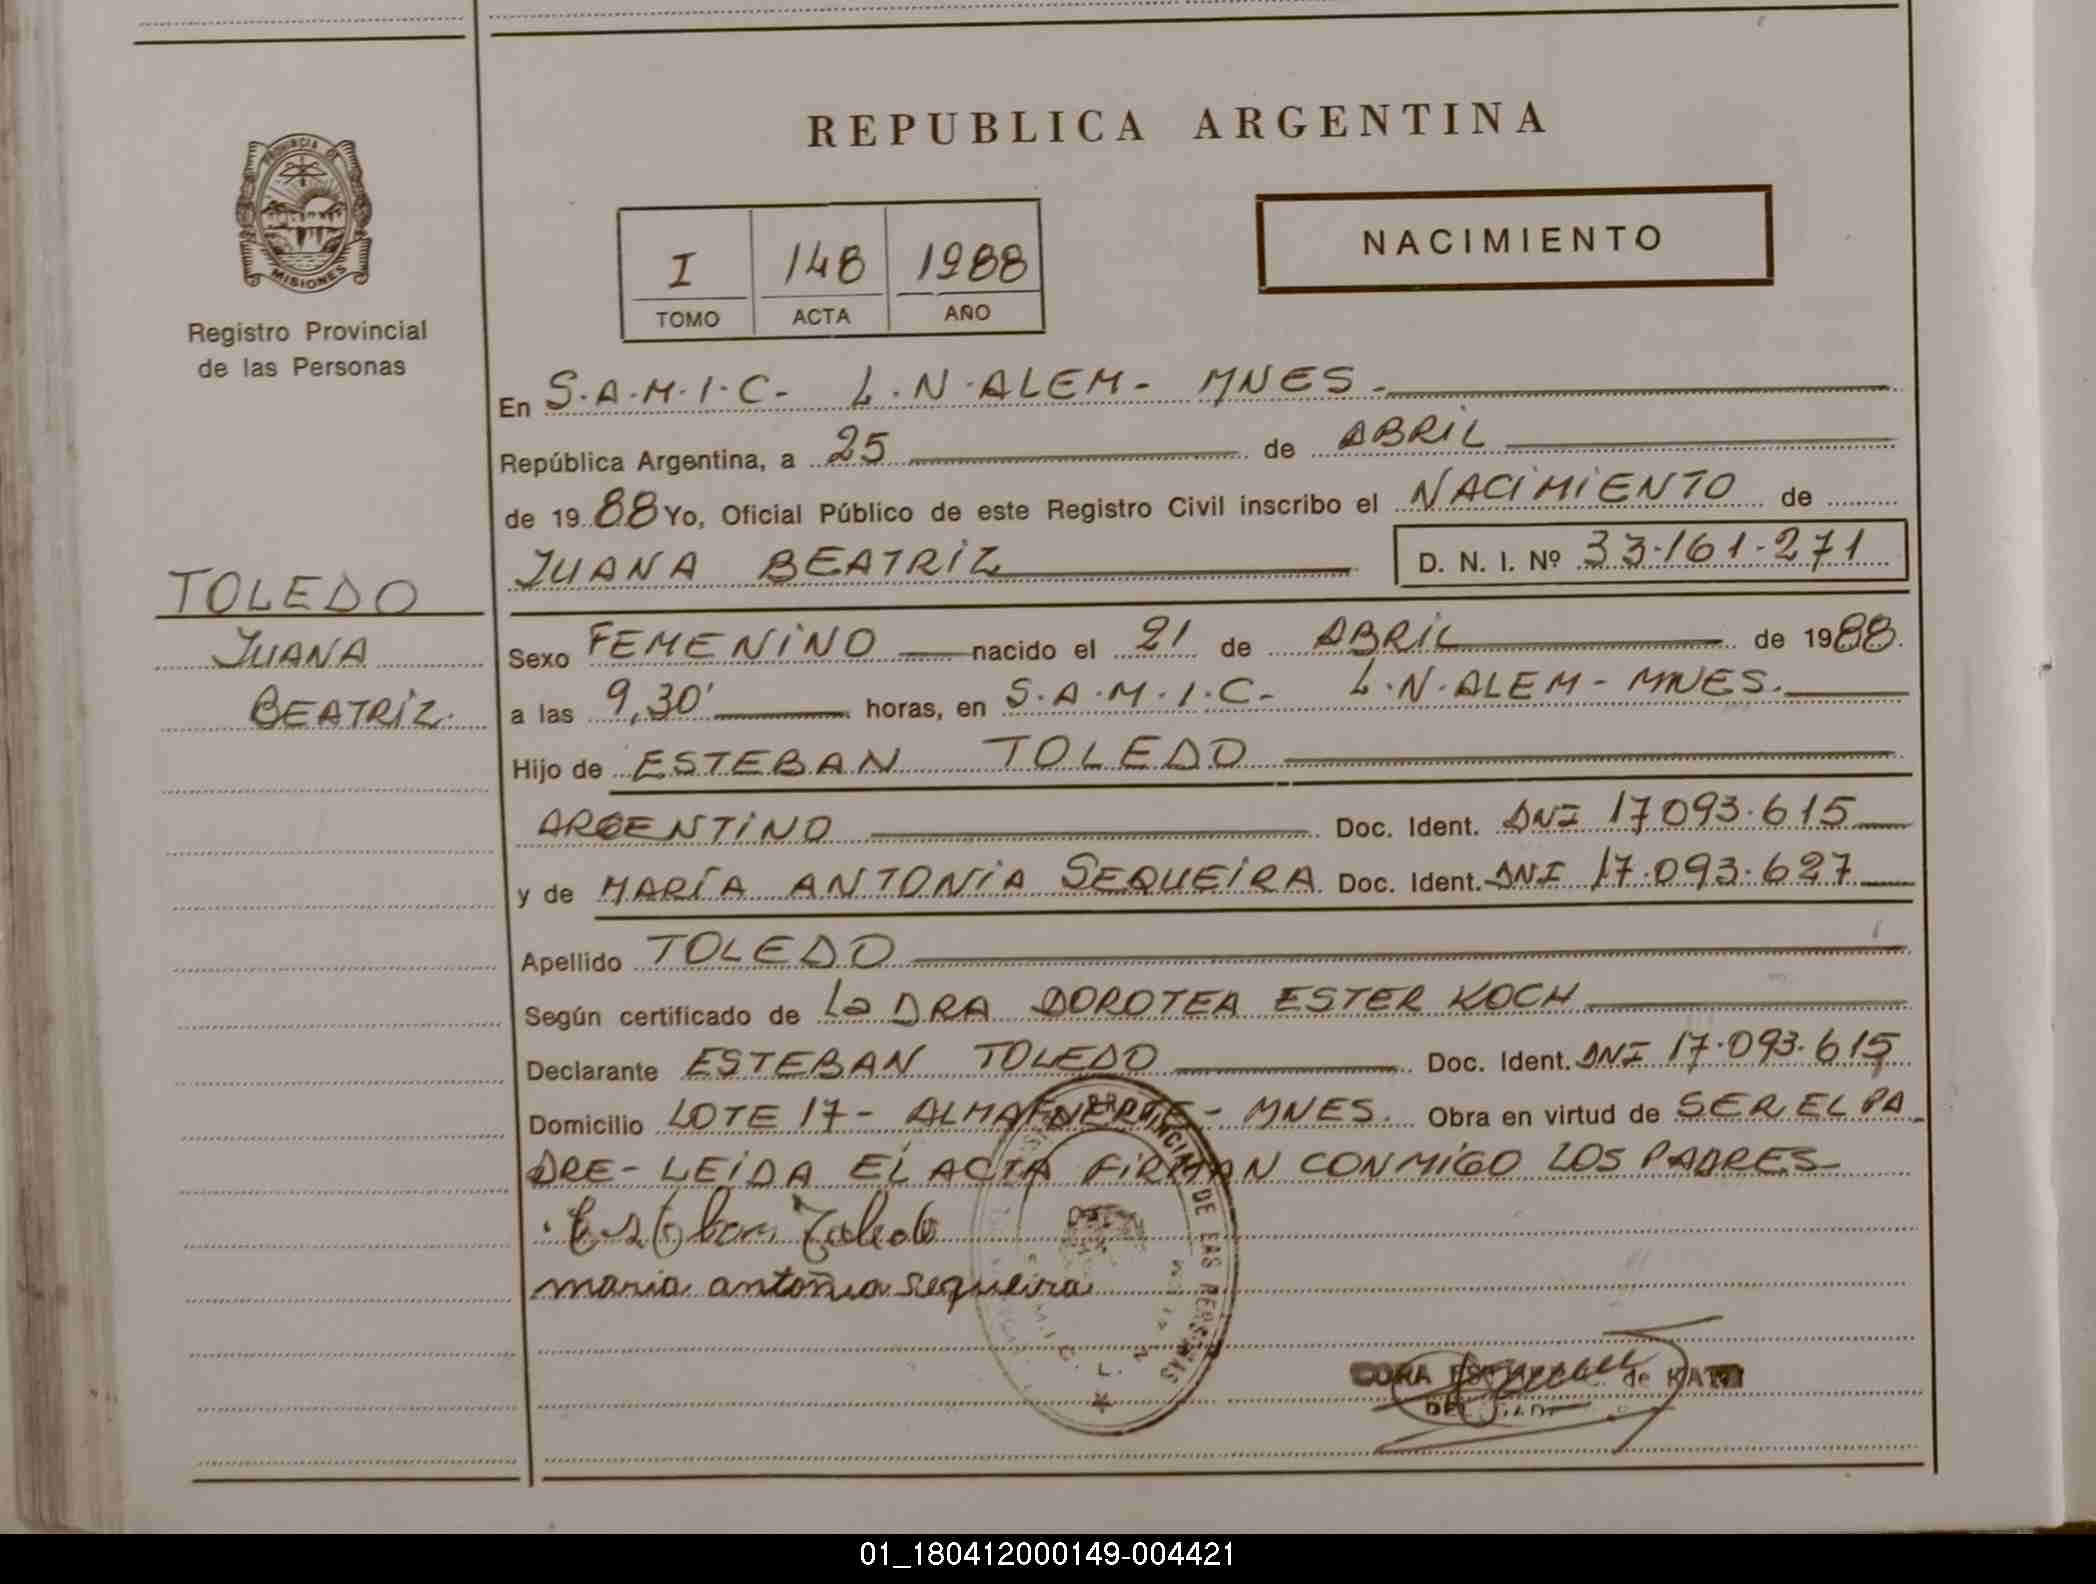 REPUBLICA ARGENTINA
PROVINCIA DE
MISIONES
Registro Provincial
de las Personas
I 148 1988
TOMO ACTA AÑO
NACIMIENTO
En S.A.M.I.C- L.N.ALEM- MNES.-
República Argentina, a 25 de ABRIL
de 1988 Yo, Oficial Público de este Registro Civil inscribo el NACIMIENTO de
JUANA BEATRIZ D. N. I. Nº 33.161.271
TOLEDO
JUANA
BEATRIZ.
Sexo FEMENINO nacido el 21 de ABRIL de 1988.
a las 9,30' horas, en S.A.M.I.C- L.N.ALEM- MNES.
Hijo de ESTEBAN TOLEDO
ARGENTINO Doc. Ident. DNI 17093.615
y de MARÍA ANTONIA SEQUEIRA Doc. Ident. DNI 17.093.627
Apellido TOLEDO
Según certificado de La DRA DOROTEA ESTER KOCH
Declarante ESTEBAN TOLEDO Doc. Ident. DNI 17.093.615
Domicilio LOTE 17- ALMAFUERTE- MNES. Obra en virtud de SER EL PA
DRE- LEIDA EL ACTA FIRMAN CONMIGO LOS PADRES-
Esteban Toledo
maria antonia sequeira
PROVINCIAL DE LAS PERSONAS
de
01_180412000149-004421